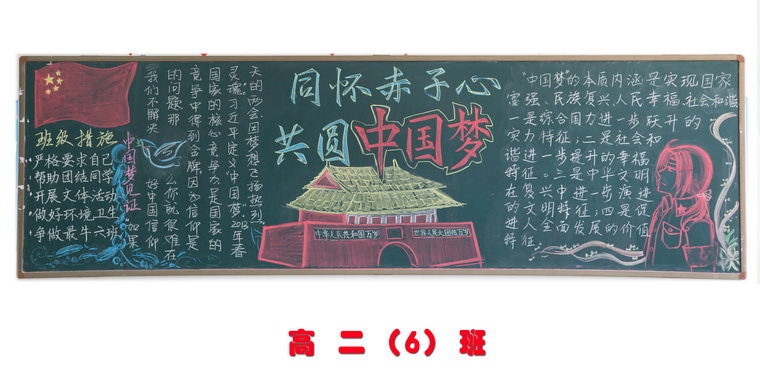 同怀赤子心
共圆中国梦
班级措施
·严格要求自己
·帮助团结同学
·开展文体活动
·做好环境卫生
·争做最牛六班
中国梦见证:如果
我们不解决好中国信仰
的问题那么你就很难在
竞争中得到金牌因为信仰是
国家的核心竞争力是国家的
灵魂"习近平定义中国梦"2013年春
天的两会因梦想飞扬热烈
中华人民共和国万岁
世界人民大团结万岁
"中国梦的本质内涵是实现国家
富强、民族复兴、人民幸福、社会和谐
一是综合国力进一步跃升的
实力特征;二是社会和
谐进一步提升的幸福
特征。三是中华文明
在复兴中进一步演进
的文明特征,四是促
进人全面发展的价值
特征
高二(6)班